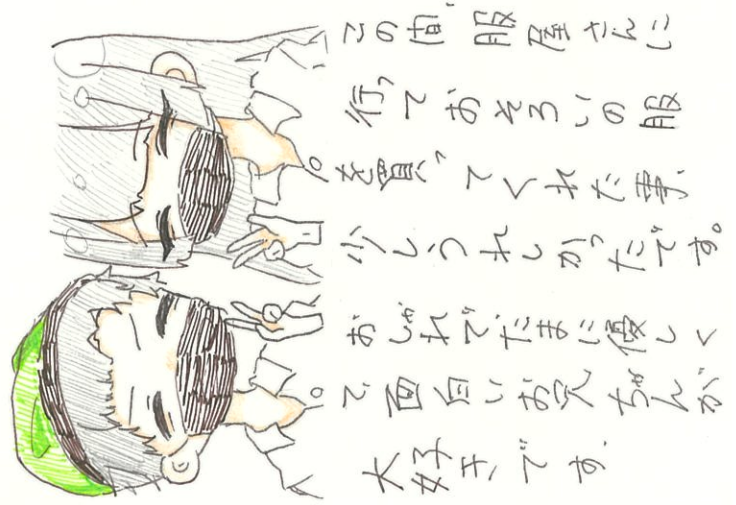 この間、服屋さんに
行っておそろいの服
を買ってくれた事、
少しうれしかったです。
おしゃれでたまに優しく
て、面白いお兄ちゃんが
大好きです。